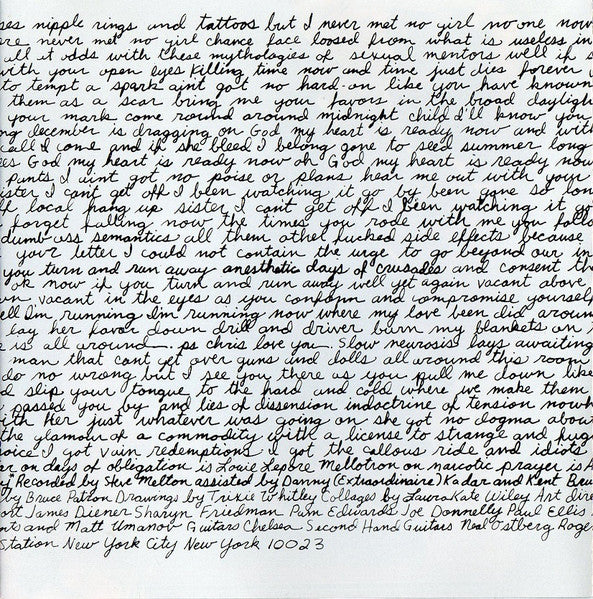 ses nipple rings and tattoos but I never met no girl no one now
ere never met no girl chance face loosed from what is useless in
all it odds with these mythologies of sexual mentors well if s
with your open eyes Killing time now and time just dies forever
to tempt a spark aint got no hard-on like you have known
them as a scar bring me your favors in the broad dayligh
your mark come round around midnight child I'll know you
ng december is dragging on God my heart is ready now and with
call I come and if she bleed I belong gone to seed summer long
es God my heart is ready now oh God my heart is ready now
pants I aint got no poise or plans hear me out with your
sister I cant get off I been watching it go by been gone so lon
local hang up sister I cant get off I been watching it go
forget falling now the times you rode with me you follo
dumb ass semantics all them other fucked side effects because
your letter I could not contain the urge to go beyond our in
you turn and run away anesthetic days of crusades and consent th
ok now if you turn and run away well yet again vacant above
vacant in the eyes as you conform and compromise yourself
ell I'm running I'm running now where my love been did aroun
lay her favor down drill and driver burn my blankets on
e is all around. ps chris love you. Slow neurosis lays awaiting
man that cant get over guns and dolls all around this room
do no wrong but I see you there as you pull me down like
d slip your tongue to the hard and cold where we make them
passed you by and lies of dissension indoctrine of tension nowh
ith Her just whatever was going on she got no dogma about
the glamour of a commodity with a license to strange and hug
oice I got vain redemptions I got the callous ride and idiots
er on days of obligation is Louie Lepore Mellotron on narcotic prayer is A
y Recorded by Steve Melton assisted by Danny (Extraordinaire) Kadar and Kent Bru
by Bruce Patron Drawings by Trixie Whitley Collages by Laura Kate Wiley Art dire
ort James Diener Sharyn Friedman Pam Edwards Joe Donnelly Paul Ellis
nts and Matt Umanov Guitars Chelsea Second Hand Guitars Neal Ostberg Roge
Station New York City New York 10023